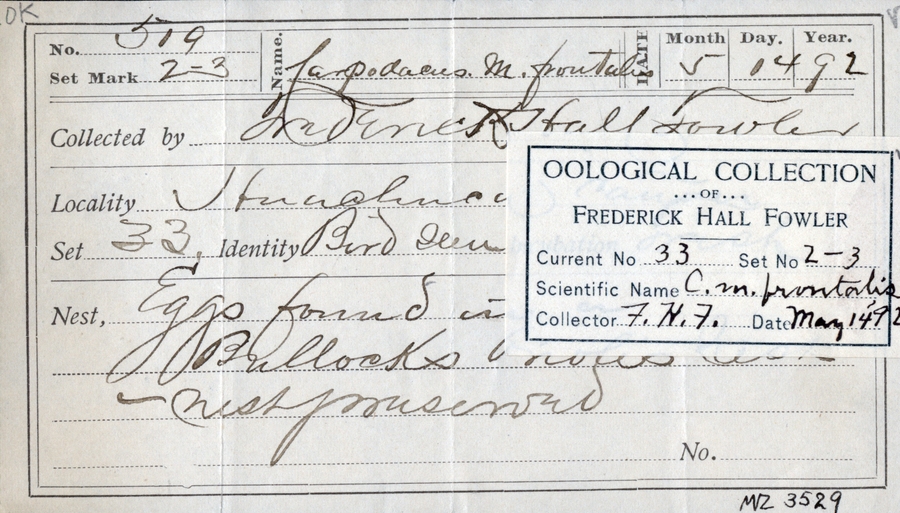 OK
No. 519 Name. Carpodacus. M. frontalis DATE Month 5 Day. 14 Year. 92
Set Mark 2-3
Collected by Frederick Hall Fowler
Locality Huachuca
Set 33. Identity Bird seen
Nest, Eggs found in
Bullocks
- nest preserved
No.
OOLOGICAL COLLECTION
....OF....
FREDERICK HALL FOWLER
Current No 33 Set No 2-3
Scientific Name C. m. frontalis
Collector F. H. F. Date May 14, 92
MVZ 3529